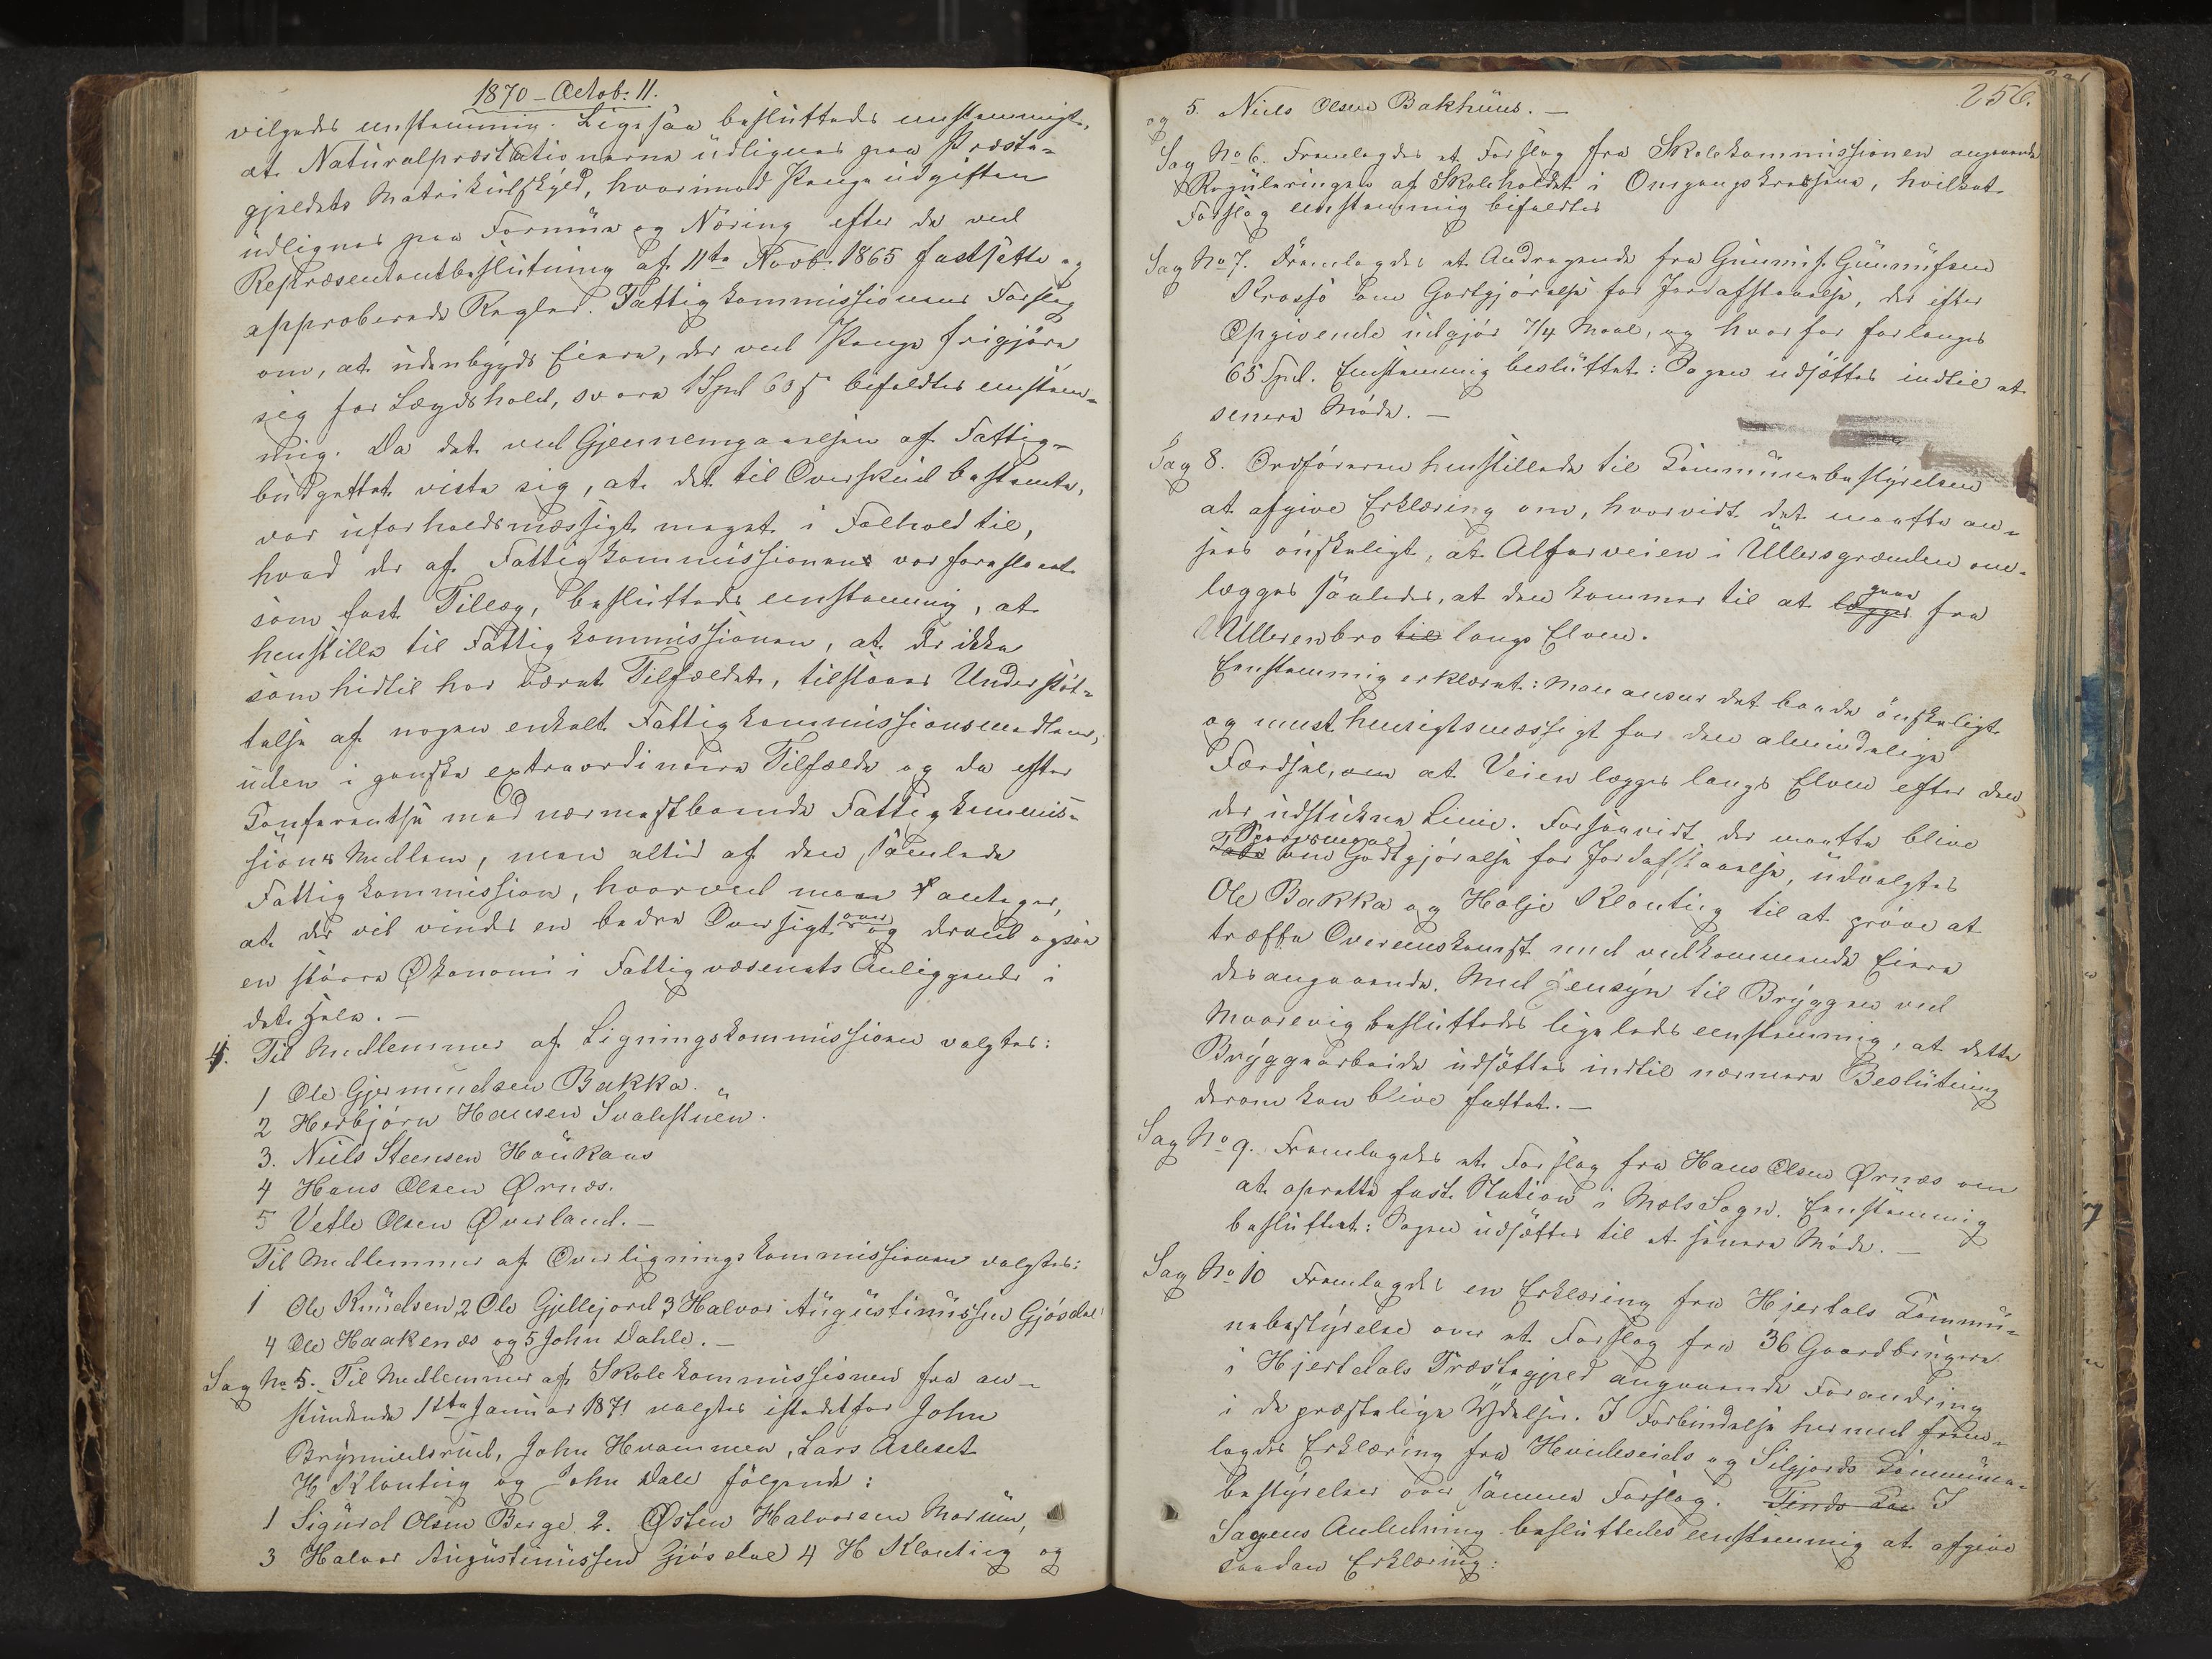 1870 - Octob: 11.
vilgedes enstemmig. Ligesaa besluttedes enstemmigt,
at Naturalpræstationerne udlignes paa Præste-
gjeldets Matrikulskyld, hvorimod Penge udgiften
udlignes paa Formue og Næring efter de ved
Repræsentantbeslutning af 11te Novb. 1865 fastsatte og
approberede Regler. Fattigkommissionens Forslag
om, at udenbygds Eiere, der ved Penge frigjøre
sig for Lægdshold, svare 1 Spd 60 ß befaldtes enstem-
mig. Da det ved Gjennemgaaelsen af Fattig-
budgettet viste sig, at det til Overskud bestemte,
var uforholdsmæssigt meget i Forhold til,
hvad der af Fattigkommissionen var foreslaaet
som fast Tillæg, besluttedes enstemmig, at
henstille til Fattigkommissionen, at der ikke
som hidtil har været Tilfældet, tilstaaes Understøt-
telse af nogen enkelt Fattigkommissionsmedlem,
uden i ganske extraordinaire Tilfælde og da efter
Conferentse med nærmestboende Fattigkommis-
sions Medlem, men altid af den samlede
Fattigkommission, hvorved man antager,
at der vil vindes en bedre Oversigt over og derved ogsaa
en større Økonomi i Fattigvæsenets Anliggende i
det Hele. -
4. Til Medlemmer af Ligningskommissionen valgtes:
1 Ole Gjermundsen Bakka.
2 Herbjørn Hansen Svalestuen.
3. Niels Steensen Haukaas
4 Hans Olsen Ørnæs.
5 Vetle Olsen Øverland. -
Til Medlemmer af Overligningskommissionen valgtes:
1 Ole Knudsen 2 Ole Gjellejord 3 Halvor Augustinussen Gjøsdal
4 Ole Haakenæs og 5 John Dahle. -
Sag No 5. Til Medlemmer af Skolekommissionen fra an-
stundende 1ste Januar 1871 valgtes istedetfor John
Brynnildsrud, John Hvammen, Lars Asleset
H Klonting og John Dale følgende:
1 Sigurd Olsen Berge 2. Østen Halvorsen Marum,
3 Halvor Augustinussen Gjøsdal 4 H Klonting og
256.
og 5. Niels Olsen Bakhuus. -
Sag No 6. Fremlagdes et Forslag fra Skolekommissionen angaaende
Reguleringen af Skoleholdet i Omgangskredsene, hvilket
Forslag enstemmig befaldtes
Sag No 7. Fremlagdes et Andragende fra Gunnuf Gunnufsen
Krossø om Godtgjørelse for Jordafstaaelse, der efter
Opgivende udgjør 7/4 Maal, og hvorfor forlanges
65 Spd. Enstemmig besluttet: Sagen udsættes indtil et
senere Møde. -
Sag 8. Ordføreren henstillede til Kommunebestyrelsen
at afgive Erklæring om, hvorvidt det maatte an-
sees ønskeligt, at Alfarveien i Ullersgrænden om-
lægges saaledes, at den kommer til at lægges gaae fra
Ullerenbro til langs Elven.
Enstemmig erklæret: Man anseer det baade ønskeligt
og mest hensigtsmæssigt for den almindelige
Færdsel, om at Veien lægges langs Elven efter den
der udstukne Linie. Forsaavidt der maatte blive
Spørgsmaal
Tale om Godtgjørelse for Jordafstaaelse, udvalgtes
Ole Bakka og Hølje Klonting til at prøve at
træffe Overenskomst med vedkommende Eiere
desangaaende. Med Hensyn til Bryggen ved
Maarevig besluttedes ligeledes eenstemmig, at dette
Bryggearbeide udsættes indtil nærmere Beslutning
derom kan blive fattet. -
Sag No 9. Fremlagdes et Forslag fra Hans Olsen Ørnæs om
at oprette fast Station i Mæls Sogn. Eenstemmig
besluttet: Sagen udsættes til et senere Møde. -
Sag No 10 Fremlagdes en Erklæring fra Hjertdals Kommu-
nebestyrelse over et Forslag fra 36 Gaardbrugere
i Hjertdals Præstegjeld angaaende Forandring
i de præstelige Ydelser. I Forbindelse hermed frem-
lagdes Erklæring fra Hevideseids og Silgjords Kommune-
bestyrelser over samme Forslag. Tinds Kom I
Sagens Anledning besluttedes eenstemmig at afgive
saadan Erklæring: